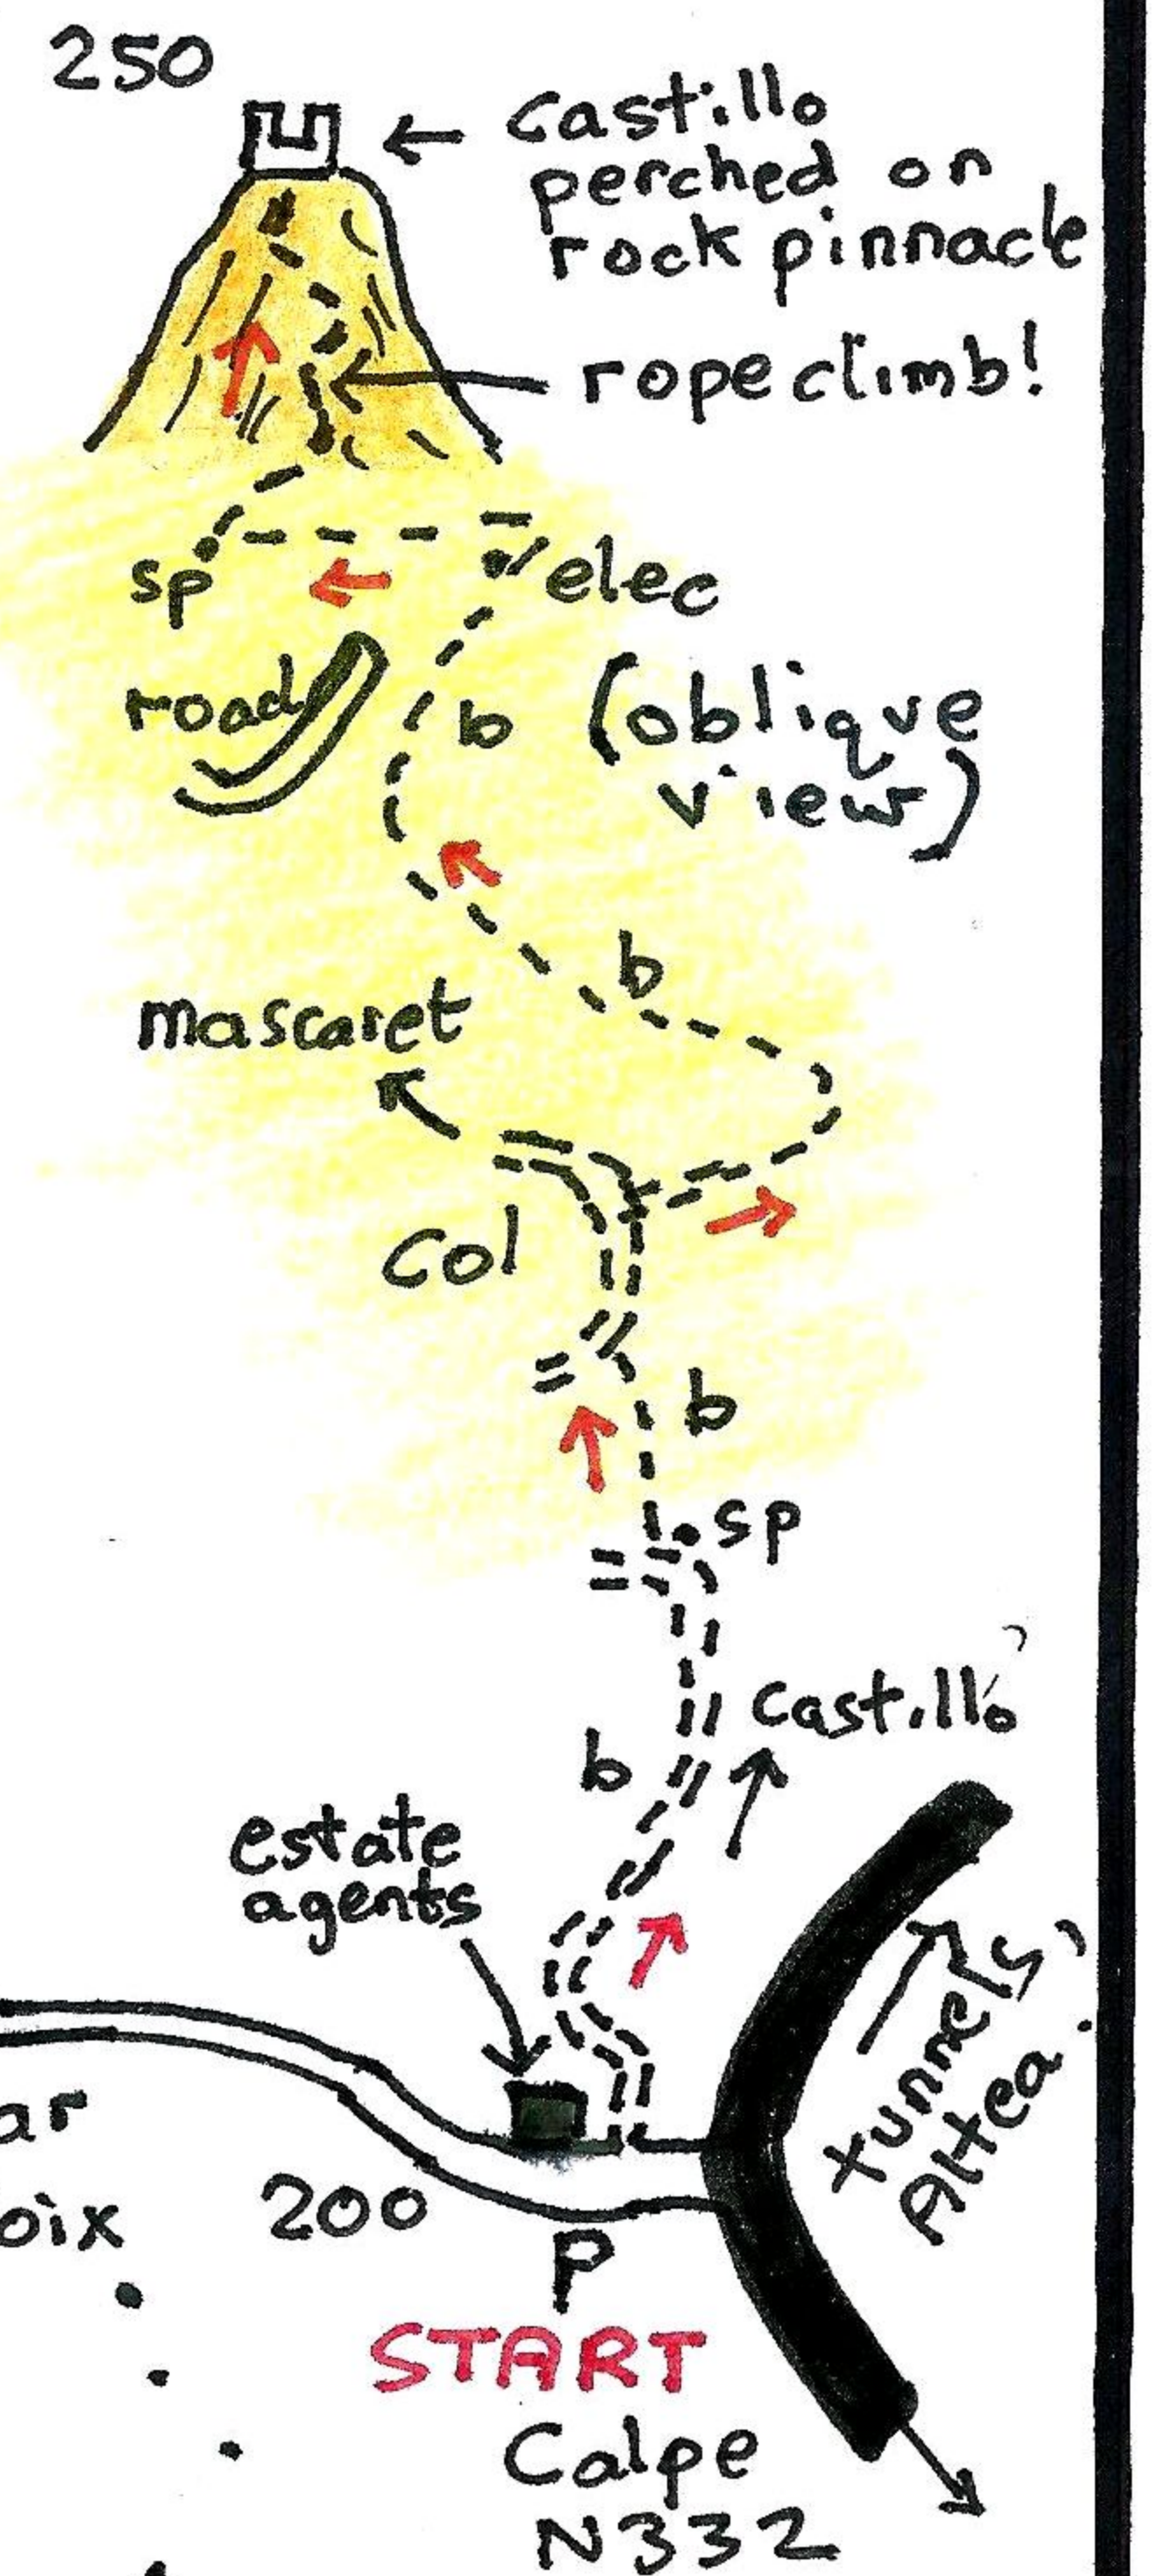 250
Castillo
perched on
rock pinnacle
rope climb!
sp
elec
road
b
(oblique
view)
b
mascaret
Col
b
sp
Castillo
b
estate
agents
tunnels
Altea
ar
oix
200
P
START
Calpe
N332